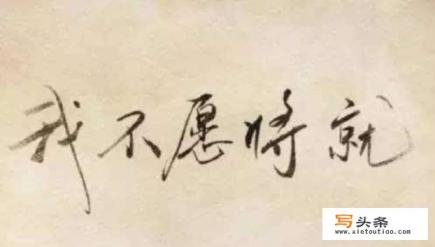 我不愿将就
写头条
www.xietoutiao.com